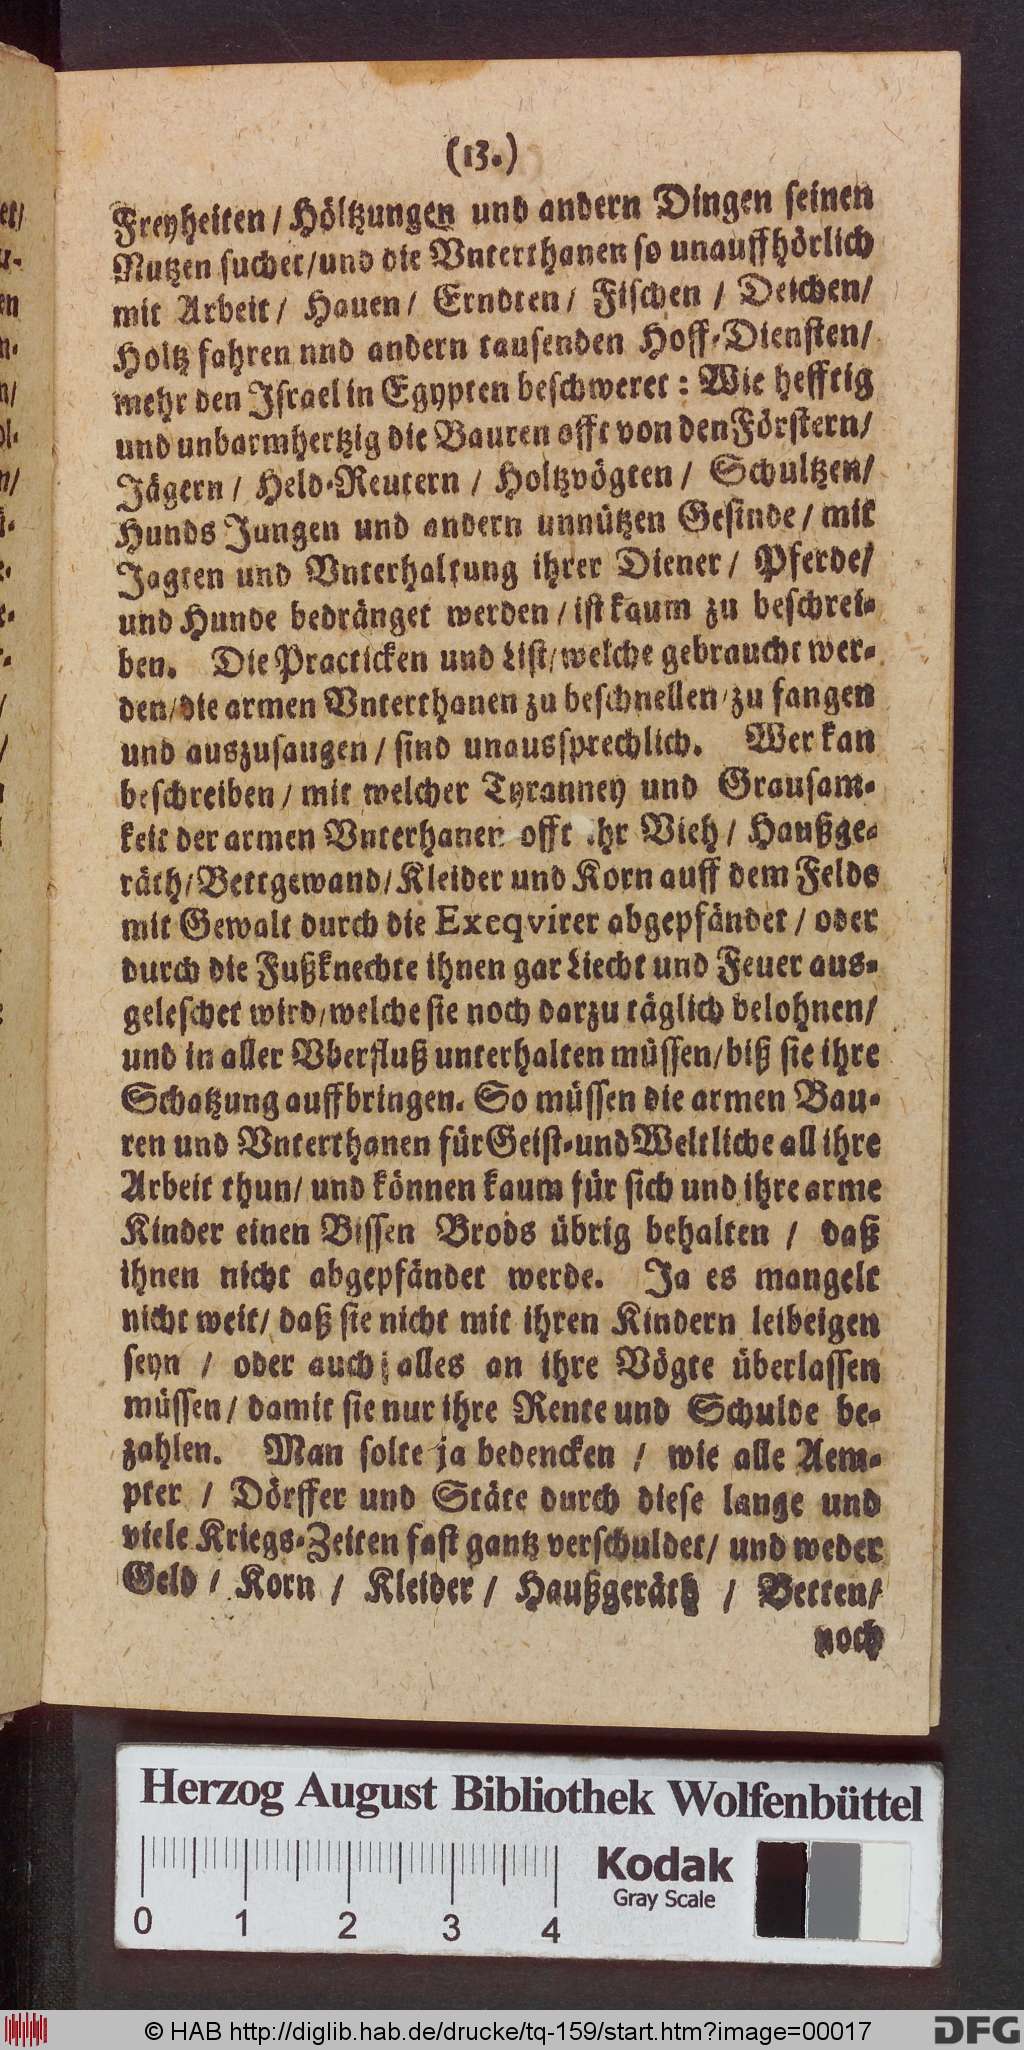 (13.)
Freyheiten/ Höltzungen und andern Dingen seinen
Nutzen suchet/und die Vnterthanen so unauffhörlich
mit Arbeit/ Hauen/ Erndten/ Fischen / Deichen/
Holtz fahren nnd andern tausenden Hoff-Diensten/
mehr den Israel in Egypten beschweret: Wie hefftig
und unbarmhertzig die Bauren offt von den Förstern/
Jägern/ Held-Reutern / Holtzvögten/ Schultzen/
Hunds Jungen und andern unnützen Gesinde/ mit
Jagten und Vnterhaltung ihrer Diener/ Pferde/
und Hunde bedränget werden/ ist kaum zu beschrei-
ben. Die Practicken und List/welche gebraucht wer-
den/die armen Vnterthanen zu beschnellen/zu fangen
und auszusaugen/ sind unaussprechlich. Wer kan
beschreiben/ mit welcher Tyranney und Grausam-
keit der armen Vnterhanen offt ihr Vieh/ Haußge-
räth/Bettgewand/Kleider und Korn auff dem Felde
mit Gewalt durch die Execqvirer abgepfändet/ oder
durch die Fußknechte ihnen gar Liecht und Feuer aus-
geleschet wird/welche sie noch darzu täglich belohnen/
und in aller Vberfluß unterhalten müssen/biß sie ihre
Schatzung auffbringen. So müssen die armen Bau-
ren und Vnterthanen für Geist-und Weltliche all ihre
Arbeit thun/ und können kaum für sich und ihre arme
Kinder einen Bissen Brods übrig behalten / daß
ihnen nicht abgepfändet werde. Ja es mangelt
nicht weit/ daß sie nicht mit ihren Kindern leibeigen
seyn / oder auch alles an ihre Vögte überlassen
müssen/ damit sie nur ihre Rente und Schulde be-
zahlen. Man solte ja bedencken / wie alle Aem-
pter / Dörffer und Stäte durch diese lange und
viele Kriegs-Zeiten fast gantz verschuldet/ und weder
Geld / Korn / Kleider/ Haußgeräth / Betten/
noch
Herzog August Bibliothek Wolfenbüttel
Kodak
Gray Scale
0 1 2 3 4
© HAB http://diglib.hab.de/drucke/tq-159/start.htm?image=00017
DFG